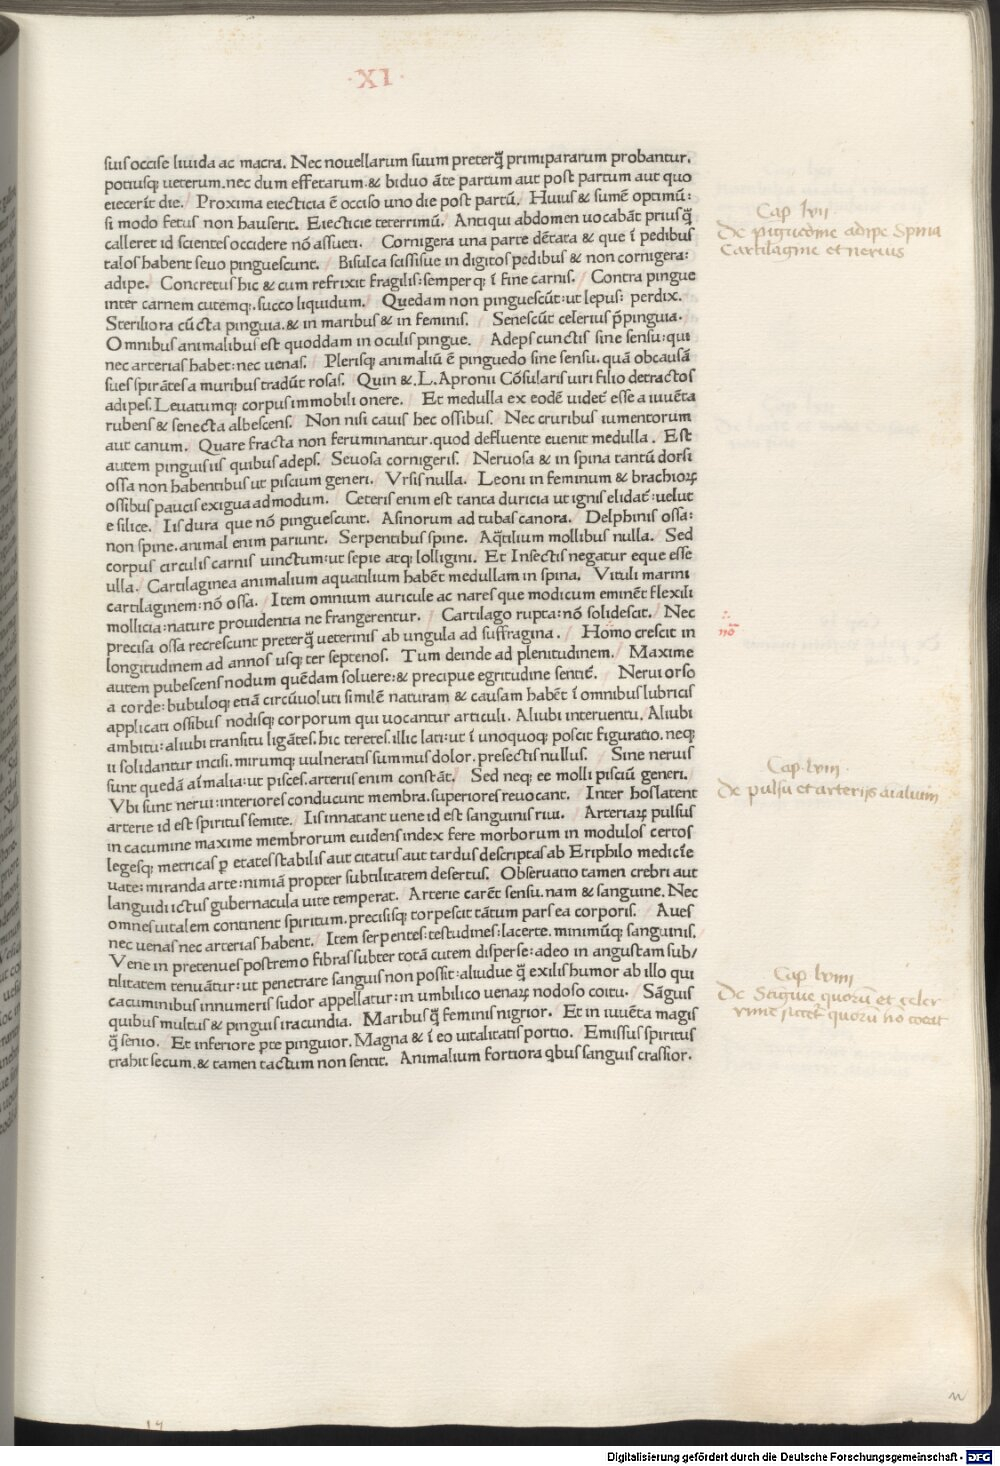 ·XI·
suis occise liuida ac macra. Nec nouellarum suum preterq̃ primipararum probantur.
potiusq; ueterum. nec dum effetarum. & biduo ãte partum aut post partum aut quo
eiecerit̃ die. Proxima eiecticia ẽ occiso uno die post partũ. Huius & sumẽ optimũ:
si modo fetus non hauserit. Eiecticie teterrimũ. Antiqui abdomen uocabãt priusq̃
calleret id scientes occidere nõ assueti. Cornigera una parte dẽtata & que ĩ pedibus
talos habent seuo pinguescunt. Bisulca scissisue in digitos pedibus & non cornigera:
adipe. Concretus hic & cum refrixit fragilis: semperq; ĩ fine carnis. Contra pingue
inter carnem cutemq; succo liquidum. Quedam non pinguescũt: ut lepus: perdix.
Steriliora cũcta pinguia. & in maribus & in feminis. Senescũt celerius p̃pinguia.
Omnibus animalibus est quoddam in oculis pingue. Adeps cunctis sine sensu: qui
nec arterias habet: nec uenas. Plerisq; animaliũ ẽ pinguedo sine sensu. quã ob causã
sues spirãtes a muribus tradũt rosas. Quin &. L. Apronii Cõsularis uiri filio detractos
adipes. Leuatumq; corpus immobili onere. Et medulla ex eodẽ uidet̃ esse a iuuẽta
rubens & senecta albescens. Non nisi cauis hec ossibus. Nec cruribus iumentorum
aut canum. Quare fracta non feruminantur. quod defluente euenit medulla. Est
autem pinguis iis quibus adeps. Seuosa cornigeris. Neruosa & in spina tantũ dorsi
ossa non habentibus ut piscium generi. Vrsis nulla. Leoni in feminum & brachioꝝ
ossibus paucis exigua admodum. Ceteris enim est tanta duricia ut ignis elidat̃: uelut
e silice. Iis dura que nõ pinguescunt. Asinorum ad tubas canora. Delphinis ossa:
non spine. animal enim pariunt. Serpentibus spine. Aq̃tilium mollibus nulla. Sed
corpus circulis carnis uinctum: ut sepie atq; lolligini. Et Insectis negatur eque esse
ulla. Cartilaginea animalium aquatilium habẽt medullam in spina. Vituli marini
cartilaginem: nõ ossa. Item omnium auricule ac nares que modicum eminẽt flexili
mollicia: nature prouidentia ne frangerentur. Cartilago rupta: nõ solidescit. Nec
precisa ossa recrescunt preterq̃ ueterinis ab ungula ad suffragina. Homo crescit in
longitudinem ad annos usq; ter septenos. Tum deinde ad plenitudinem. Maxime
autem pubescens nodum quẽdam soluere: & precipue egritudine sentit̃. Nerui orso
a corde: bubuloq; etiã circũuoluti similẽ naturam & causam habẽt ĩ omnibus lubricis
applicati ossibus nodisq; corporum qui uocantur articuli. Aliubi interuentu. Aliubi
ambitu: aliubi transitu ligãtes. hic teretes. illic lati: ut ĩ unoquoq; poscit figuratio. neq;
ii solidantur incisi. mirumq; uulneratis summus dolor. presectis nullus. Sine neruis
sunt quedã aĩmalia: ut pisces. arteriis enim constãt. Sed neq; ee molli pisciũ generi.
Vbi sunt nerui: interiores conducunt membra. superiores reuocant. Inter hos latent
arterie id est spiritus semite. Iis innatant uene id est sanguinis riui. Arteriaꝝ pulsus
in cacumine maxime membrorum euidens index fere morborum in modulos certos
legesq; metricas ꝑ etates stabilis aut citatus aut tardus descriptas ab Eriphilo medicĩe
uate: miranda arte: nimiã propter subtilitatem desertus. Obseruatio tamen crebri aut
languidi ictus gubernacula uite temperat. Arterie carẽt sensu. nam & sanguine. Nec
omnes uitalem continent spiritum. precisisq; torpescit tãtum pars ea corporis. Aues
nec uenas nec arterias habent. Item serpentes: testudines: lacerte. minimũq; sanguinis.
Vene in pretenues postremo fibras subter totã cutem disperse: adeo in angustam sub/
tilitatem tenuãtur: ut penetrare sanguis non possit: aliudue q̃ exilis humor ab illo qui
cacuminibus innumeris sudor appellatur: in umbilico uenaꝝ nodoso coitu. Sãguis
quibus multus & pinguis iracundia. Maribus q̃ feminis nigrior. Et in iuuẽta magis
q̃ senio. Et inferiore ꝑte pinguior. Magna & ĩ eo uitalitatis portio. Emissus spiritus
trahit secum. & tamen tactum non sentit. Animalium fortiora qbus sanguis crassior.
Cap lvii
De pīguedine adipe Spina
Cartilagine et neruis
nõ
Cap. lviii.
De pulsu et arterijs aīalium
Cap lviiii
De Sāguine quorū et celer
rime
quorū nō coeat
Digitalisierung gefördert durch die Deutsche Forschungsgemeinschaft - DFG